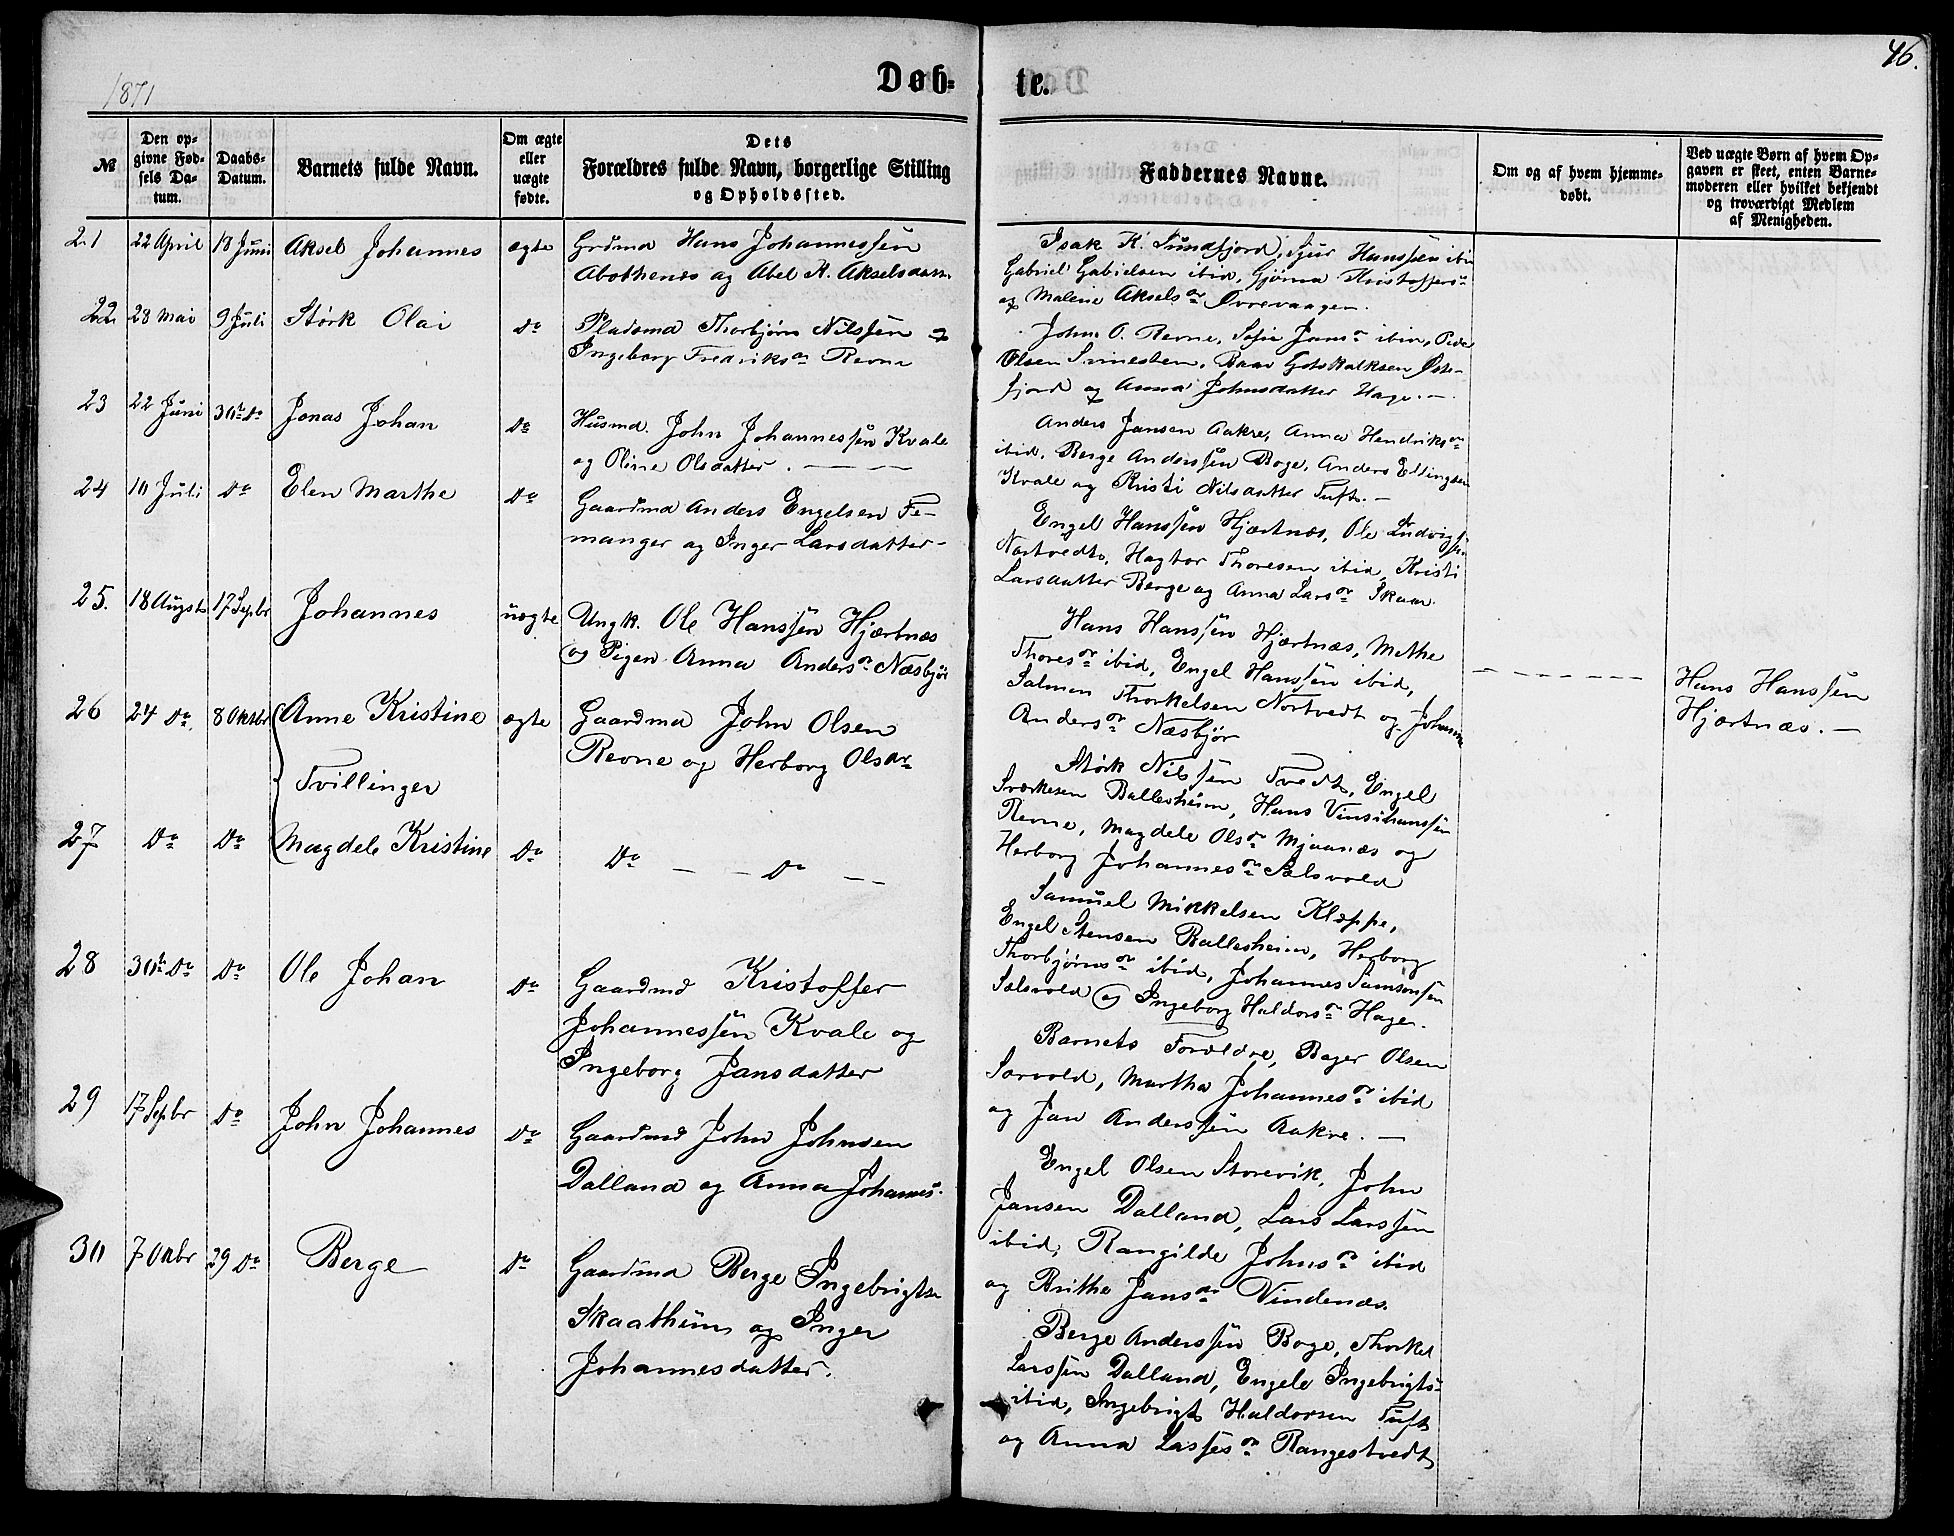 1871
Døb-
te.
46.
№
Den op-
givne Fød-
sels Da-
tum.
Daabs-
Datum.
Barnets fulde Navn.
Om ægte
eller
uægte
fødte.
Dets
Forældres fulde Navn, borgerlige Stilling
og Opholdssted.
Faddernes Navne.
Om og af hvem hjemme-
døbt.
Ved uægte Børn af hvem Op-
gaven er skeet, enten Barne-
moderen eller hvilket bekjendt
og troværdigt Medlem
af Menigheden.
21 22 April 18 Juni Aksel Johannes ægte Grdmd Hans Johannessen
Abothenes og Abel K. Akselsdatter
Isak K. Sundfjord, Sjur Hanssen ibid
Gabriel Gabrielsen ibid, Gjørna Kristoffers
og Malene Akselsdr Øvrevaagen.
22 28 Mai 9 Juli Størk Olai Do Pladsmd Thorbjørn Nilssen og
Ingeborg Fredriksdr Revne
John O. Revne, Sofie Jansdr ibid, Peder
Olsen Svinesten, Baar Gotskalksen Øste-
fjord og Anna Johnsdatter Hage.
23 22 Juni 30te Do Jonas Johan Do Husmd. John Johannessen Kvale
og Oline Olsdatter.
Anders Jansen Aakre, Anna Hendriksdr
ibid, Berge Anderssen Boge, Anders Ellingsen
Kvale og Kristi Nilsdatter Tuft.
24 10 Juli Do Elen Marthe Do Gaardmd Anders Engelsen Fe-
manger og Inger Larsdatter
Engel Hanssen Hjærtnæs, Ole Ludvigsen
Nortvedt, Hagtor Thoresen ibid, Kristi
Larsdatter Berge og Anna Larsdr Skaar.
25. 18 August 17 Sepbr Johannes uægte Ungk. Ole Hanssen Hjærtnæs
og Pigen Anna Andersdr Næsbjør
Hans Hanssen Hjærtnæs, Methe
Thoresdr ibid, Engel Hanssen ibid,
Salmon Thorkelsen Nortvedt og Johanna
Andersdr Næsbjør
Hans Hanssen
Hjærtnæs.
26 24 Do 8 Oktbr Anne Kristine ægte Gaardmd John Olsen
Revne og Herborg Olsdr
Tvillinger
Størk Nilssen Tvedt, Engel
Sværkesen Ballesheim, Hans Vinsihanssen
Revne, Magdele Olsdr Mjaanæs og
Herborg Johannesdr Sælsvold
27 Do Do Magdele Kristine Do Do Do
Samuel Mikkelsen Kleppe,
Engel Stensen Ballesheim, Herborg
Thorbjørnsdr ibid, Johannes Samsonsen
Sælsvold og Ingeborg Haldorsdr Hage.
28 30te Do Do Ole Johan Do Gaardmd Kristoffer
Johannessen Kvale og
Ingeborg Jansdatter
Barnets Forældre, Bager Olsen
Sørvold, Martha Johannesdr ibid
og Jan Anderssen Aakre.
29 17 Sepbr Do John Johannes Do Gaardmd John Johnsen
Dalland og Anna Johannes.
Engel Olsen Storevik, John
Jansen Dalland, Lars Larssen
ibid, Rangilde Johnsdr ibid
og Brithe Jansdr Vindenæs.
30 7 Okbr 29 Do Berge Do Gaardmd Berge Ingebrigtsen
Skaatheim og Inger
Johannesdatter.
Berge Anderssen Boge, Thorkel
Larssen Dalland, Engele Ingebrigts
ibid, Ingebrigt Haldorsen Tuft
og Anna Lassesdr Rangestvedt